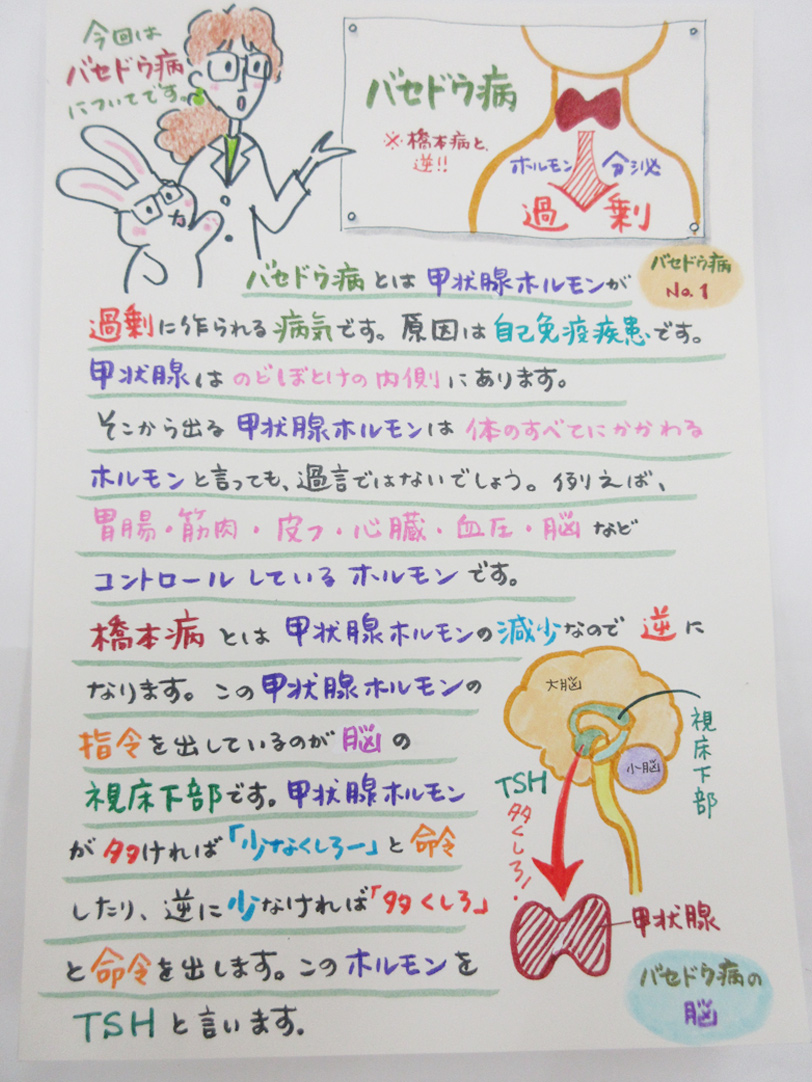 今回は
バセドウ病
についてです。
バセドウ病
※橋本病と、
逆!!
ホルモン 分泌
過剰
バセドウ病
No.1
バセドウ病とは甲状腺ホルモンが
過剰に作られる病気です。原因は自己免疫疾患です。
甲状腺はのどぼとけの内側にあります。
そこから出る甲状腺ホルモンは体のすべてにかかわる
ホルモンと言っても、過言ではないでしょう。例えば、
胃腸・筋肉・皮フ・心臓・血圧・脳など
コントロールしているホルモンです。
橋本病とは甲状腺ホルモンの減少なので逆に
なります。この甲状腺ホルモンの
指令を出しているのが脳の
視床下部です。甲状腺ホルモン
が多ければ「少なくしろー」と命令
したり、逆に少なければ「多くしろ」
と命令を出します。このホルモンを
TSHと言います。
大脳
視床下部
小脳
TSH
多くしろ!
甲状腺
バセドウ病の
脳